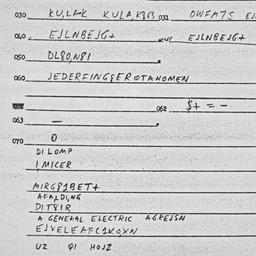 030 KU,LA-K KULA,K8G3 031 OWFM7S EJ
040 EJLNBEJG+ EJLNBEJG+
050 DL8O,N8I
060 JEDERFINGGEROTANOMEN
062 $+ = -
063 -
070 0
DILOMP
IMICER
MIRG81BET+
AFALDI,NG
DIT8IR
A GENERAL ELECTRIC AGREJSN
EJVELEAFC1KQXN
U2 QI HOJZ